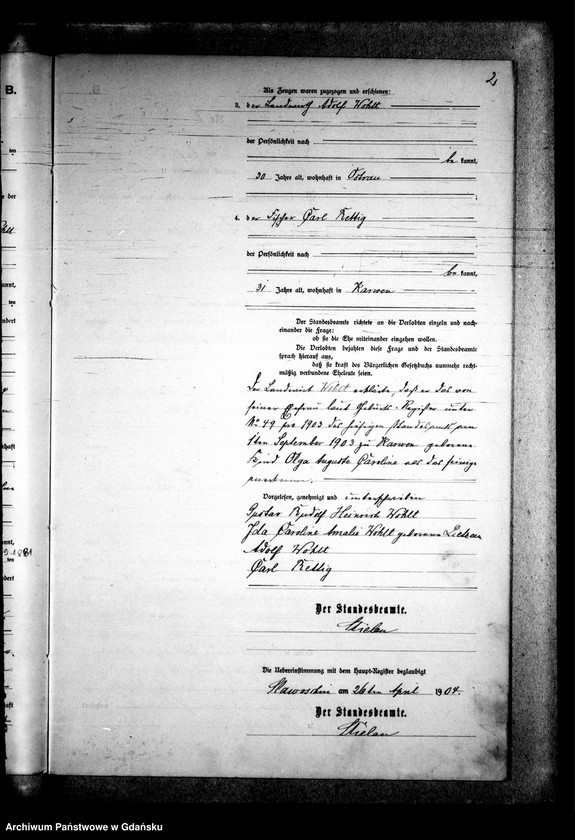 2
B.
Als Zeugen waren zugezogen und erschienen:
3. der Landwirth Adolf Wohlt
der Persönlichkeit nach
be kannt,
30 Jahre alt, wohnhaft in Ostrau
4. der Fischer Carl Rettig
der Persönlichkeit nach
be kannt,
31 Jahre alt, wohnhaft in Karwen
Der Standesbeamte richtete an die Verlobten einzeln und nach-
einander die Frage:
ob sie die Ehe miteinander eingehen wollen.
Die Verlobten bejahten diese Frage und der Standesbeamte
sprach hierauf aus,
daß sie kraft des Bürgerlichen Gesetzbuchs nunmehr recht-
mäßig verbundene Eheleute seien.
Der Landwirt Wohlt erklärte, daß er das von
seiner Ehefrau laut Geburts-Register unter
No 49 pro 1903 des hiesigen Standesamts am
1ten September 1903 zu Karwen geborene
Kind Olga Auguste Caroline als das seinige
anerkenne.
Vorgelesen, genehmigt und unterschrieben
Gustav Rudolf Heinrich Wohlt
Ida Caroline Amalie Wohlt geborene
Adolf Wohlt
Carl Rettig
Der Standesbeamte.
Die Uebereinstimmung mit dem Haupt-Register beglaubigt
am 26ten April 1904.
Der Standesbeamte.
Archiwum Państwowe w Gdańsku